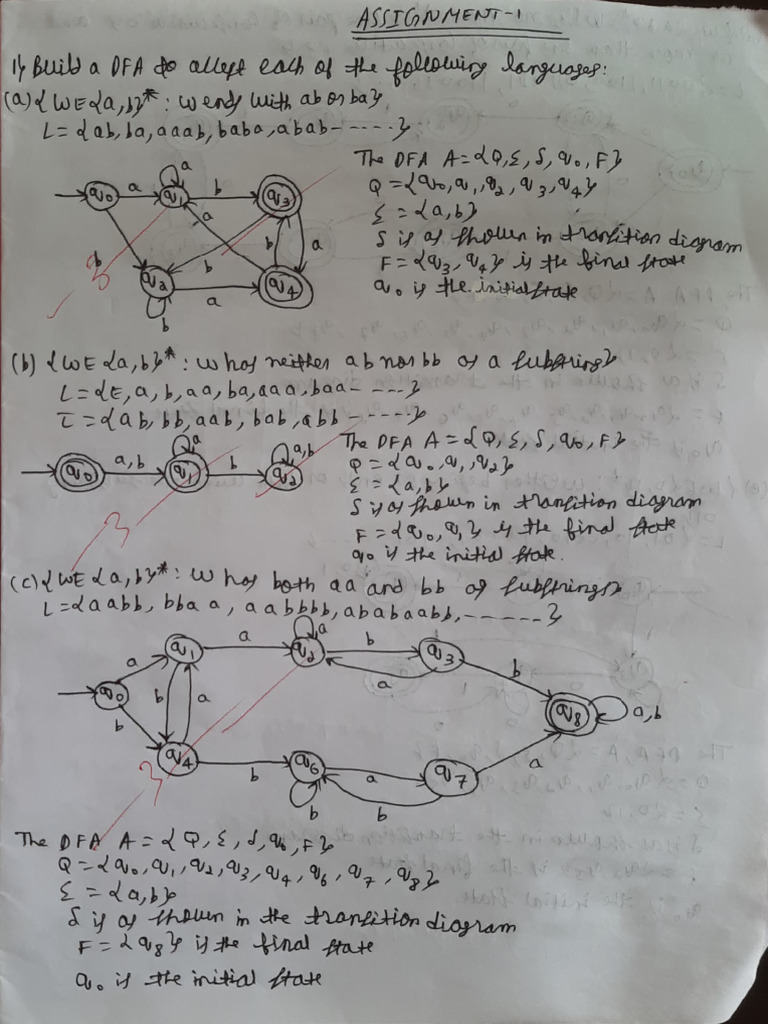 ASSIGNMENT-1
1) Build a DFA to accept each of the following languages:
(a) {WE{a,b}*: w ends with ab or ba}
L={ab, ba, aaab, baba, abab-----}
The DFA A={Q, Σ, δ, q0, F}
Q={q0, q1, q2, q3, q4}
Σ={a,b}
δ is as shown in transition diagram
F={q3, q4} is the final state
q0 is the initial state
q0 a q1 a b q3
a
b b b a
q2 a q4
b
3
(b) {WE{a,b}*: w has neither ab nor bb as a substring}
L={ε, a, b, aa, ba, aaa, baa-----}
L={ab, bb, aab, bab, abb-----}
The DFA A={Q, Σ, δ, q0, F}
Q={q0, q1, q2}
Σ={a,b}
δ is as shown in transition diagram
F={q0, q1} is the final state
q0 is the initial state.
q0 a,b q1 a b q2 a,b
3
(c) {WE{a,b}*: w has both aa and bb as substrings}
L={aabb, bbaa, aabbbb, ababaabb,------}
q0 a q1 a q2 a b q3 b
a
b b a q8 a,b
q4 b q6 a q7 a
b b
3
The DFA A={Q, Σ, δ, q0, F}
Q={q0, q1, q2, q3, q4, q6, q7, q8}
Σ={a,b}
δ is as shown in the transition diagram
F={q8} is the final state
q0 is the initial state